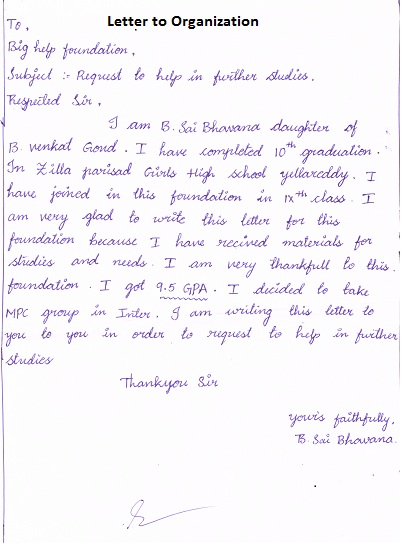 Letter to Organization
To,
Big help foundation,
Subject :- Request to help in further studies.
Respected Sir,
I am B. Sai Bhavana daughter of
B. venkat Goud. I have completed 10th graduation.
In Zilla parisad Girls High school yellareddy. I
have joined in this foundation in IXth class. I
am very glad to write this letter for this
foundation because I have recived materials for
studies and needs. I am very thankfull to this.
foundation. I got 9.5 GPA. I decided to take
MPC group in Inter. I am writing this letter to
you to you in order to request to help in further
studies
Thankyou Sir
yours faithfully,
B. Sai Bhavana.